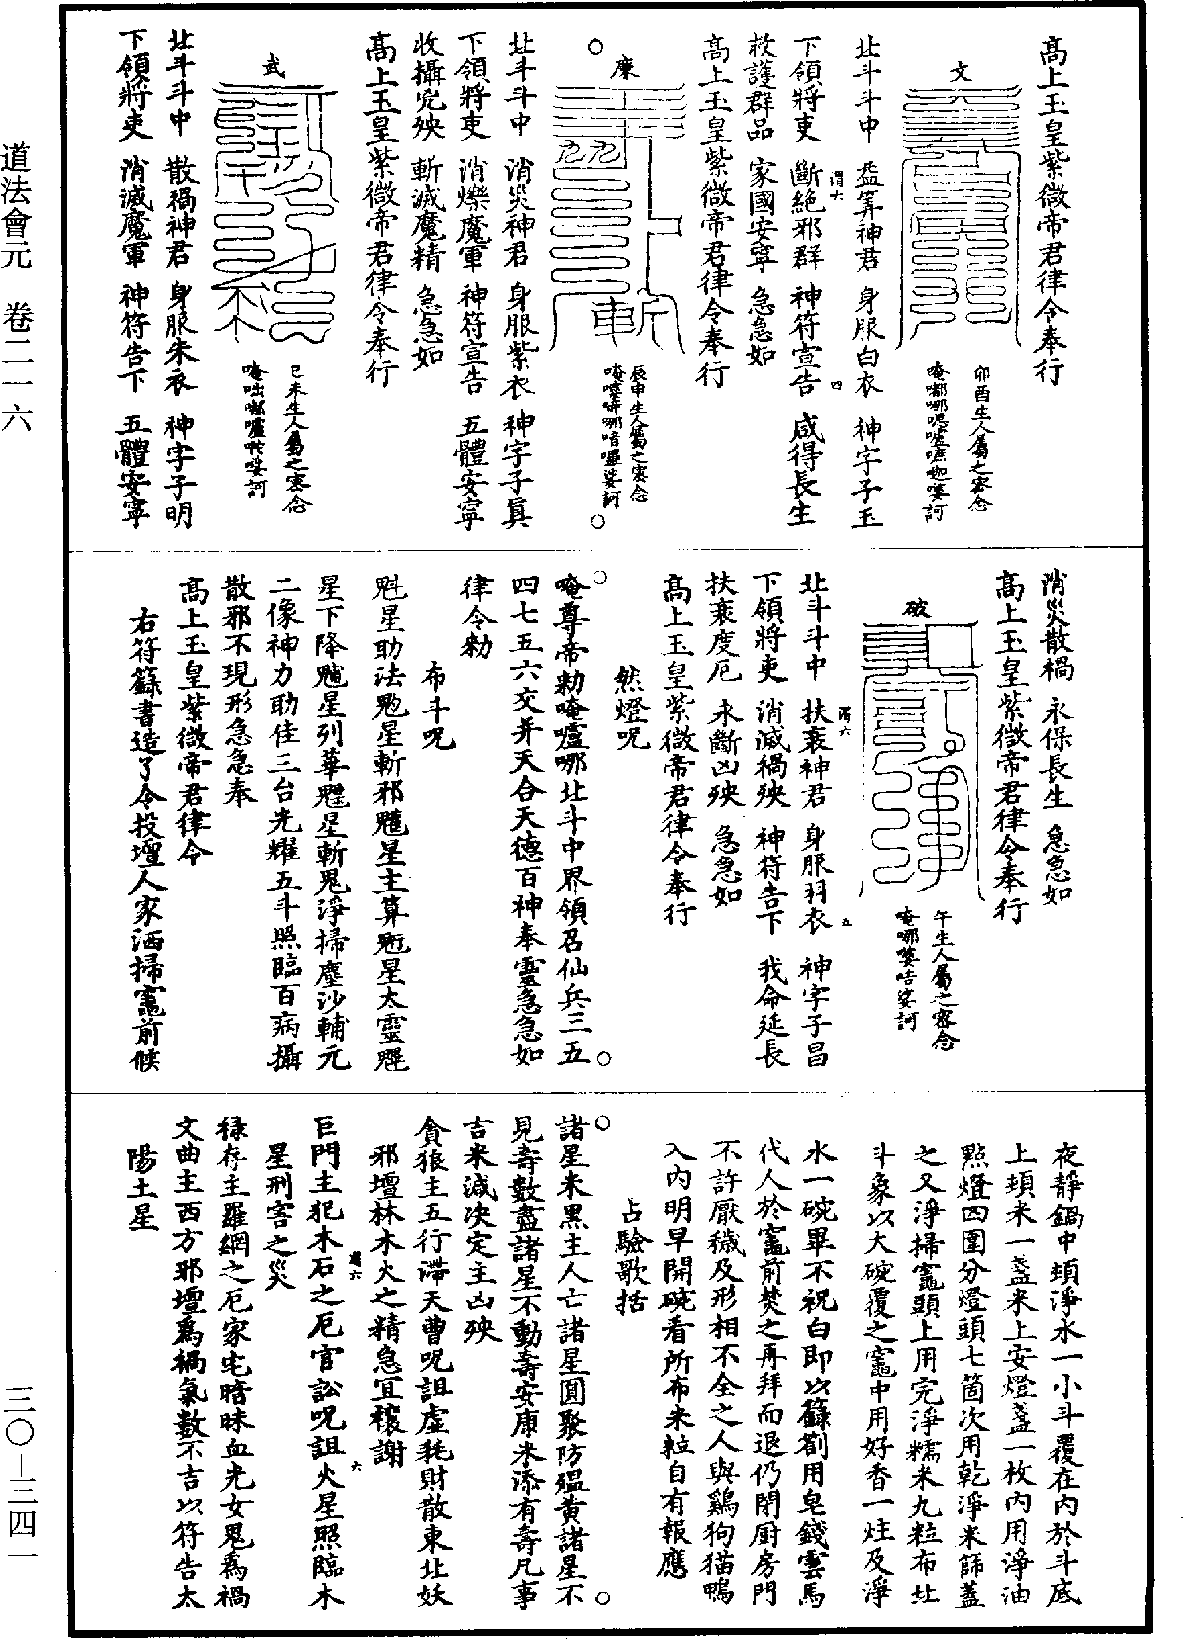 道法會元　卷二一六
三〇—三四一
高上玉皇紫微帝君律令奉行
文
卯酉生人屬之密念
北斗斗中　益筭神君　身服白衣　神字子玉
下領將吏　斷絕邪群　神符宣告　咸得長生
救護群品　家國安寧　急急如
高上玉皇紫微帝君律令奉行
廉
辰申生人屬之密念
北斗斗中　消災神君　身服紫衣　神字子真
下領將吏　消爍魔軍　神符宣告　五體安寧
收攝兇殃　斬滅魔精　急急如
高上玉皇紫微帝君律令奉行
武
巳未生人屬之密念
北斗斗中　散禍神君　身服朱衣　神字子明
下領將吏　消滅魔軍　神符告下　五體安寧
消災散禍　永保長生　急急如
高上玉皇紫微帝君律令奉行
破
午生人屬之密念
北斗斗中　扶衰神君　身服羽衣　神字子昌
下領將吏　消滅禍殃　神符告下　我命延長
扶衰度厄　永斷凶殃　急急如
高上玉皇紫微帝君律令奉行
然燈呪
唵尊帝勑唵嚧哪北斗中界領召仙兵三五
四七五六交并天合天德百神奉靈急急如
律令勑
布斗呪
魁星助法魓星斬邪魒星主算魁星太靈魓
星下降魒星列華魓星斬鬼淨掃塵沙輔元
二像神力助佳三台光耀五斗照臨百病攝
散邪不現形急急奉
高上玉皇紫微帝君律令
右符籙書造了令投壇人家洒掃竈前候
夜靜鍋中頓淨水一小斗覆在內於斗底
上頓米一盞米上安燈盞一枚內用淨油
點燈四圍分燈頭七箇次用乾淨米篩蓋
之又淨掃竈頭上用完淨糯米九粒布北
斗象以大碗覆之竈中用好香一炷及淨
水一碗畢不祝白即以籙劄用皂錢雲馬
代人於竈前焚之再拜而退仍閉廚房門
不許厭穢及形相不全之人與鷄狗猫鴨
入內明早開碗看所布米粒自有報應
占驗歌括
諸星米黑主人亡諸星圓聚防瘟黃諸星不
見壽數盡諸星不動壽安康米添有壽凡事
吉米減決定主凶殃
貪狼主五行滯天曹呪詛虛耗財散東北妖
邪壇林木火之精急宜禳謝
巨門主犯木石之厄官訟呪詛火星照臨木
星刑害之災
祿存主羅網之厄家宅暗昧血光女鬼爲禍
文曲主西方邪壇爲禍氣數不吉以符告太
陽土星